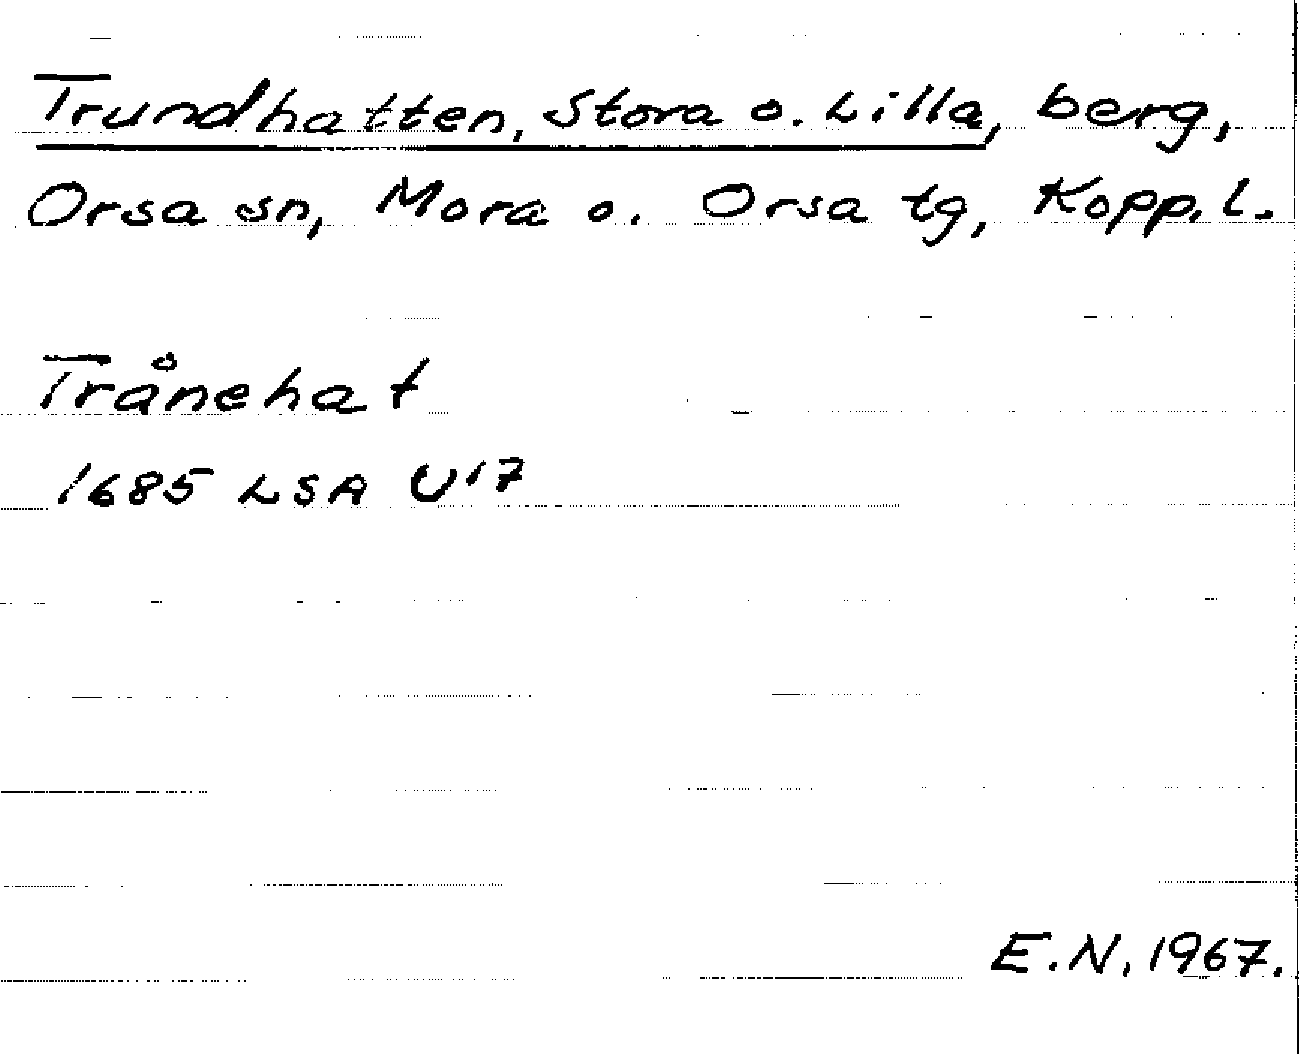 Trundhatten, Stora o. Lilla, berg,
Orsa sn, Mora o. Orsa tg, Kopp. l.
Trånehat
1685 LSA U17
E.N. 1967.